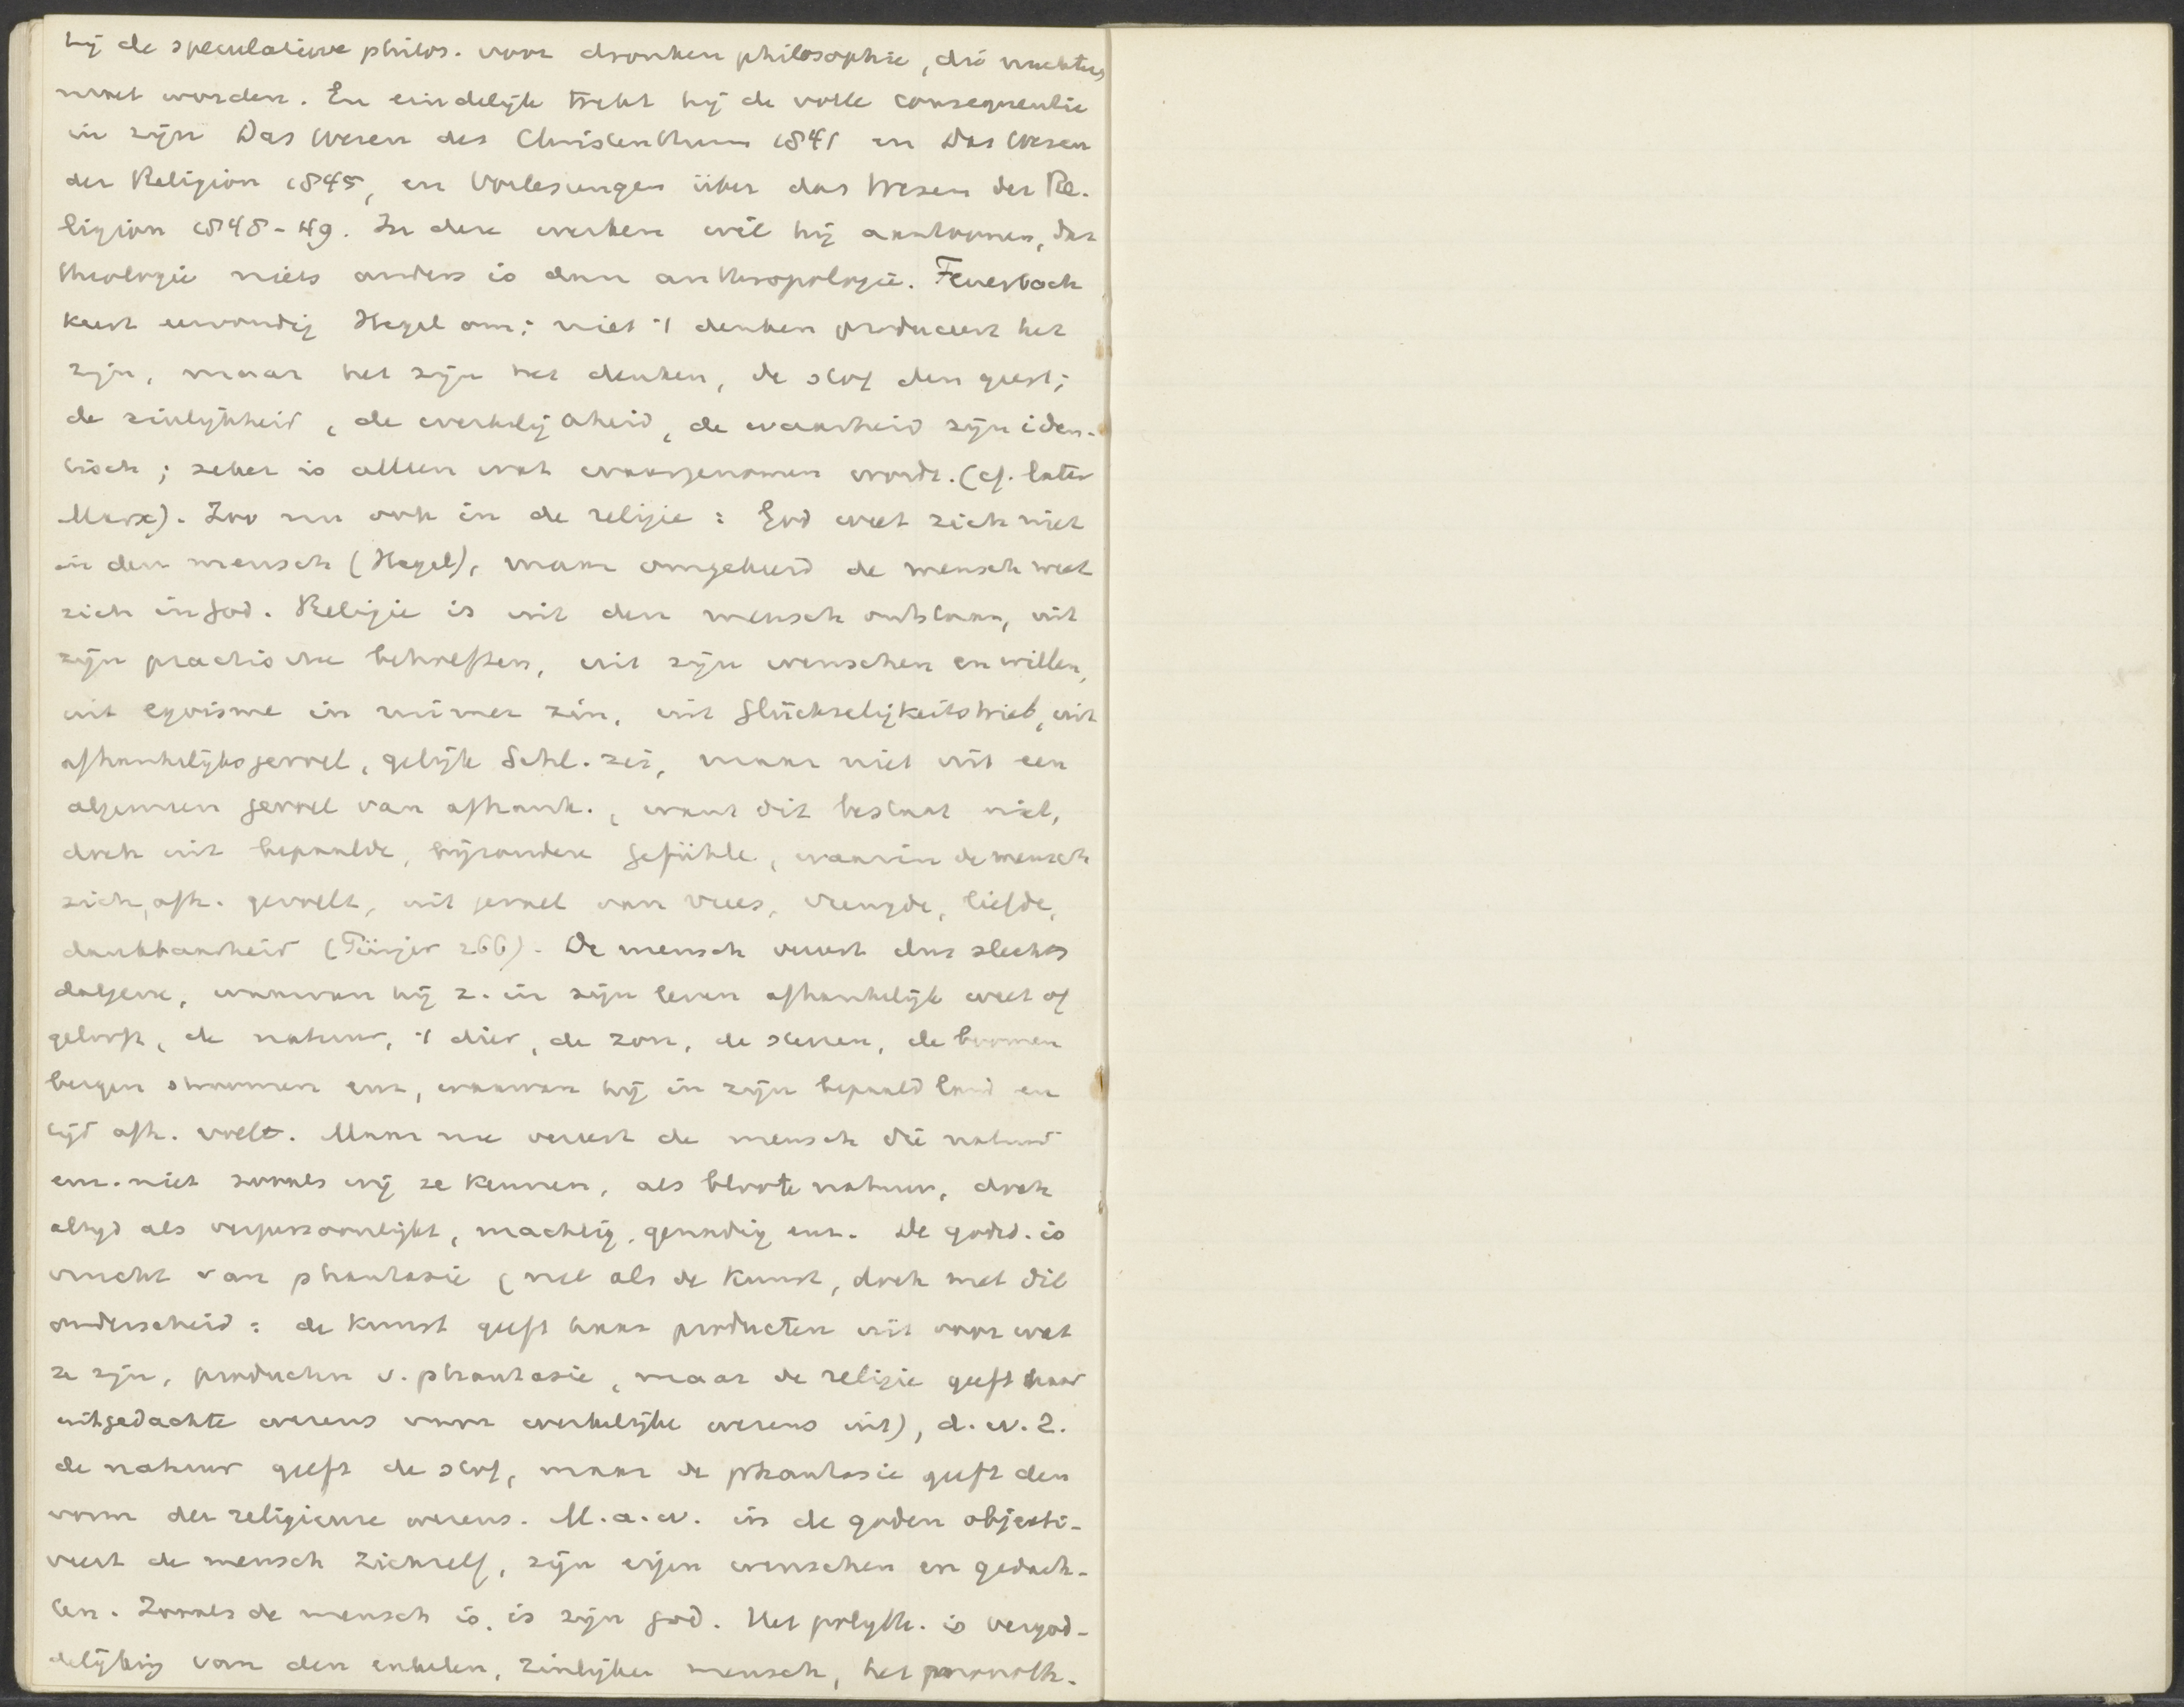 hij de speculatieve philos. voor dronken philosophie, die nuchter
moet worden. En eindelijk trekt hij de volle consequentie
in zijn Das Wesen des Christenthums 1841 en Das Wesen
der Religion 1845, en Vorlesungen über das Wesen der Re-
ligion 1848-49. In deze werken wil hij aantoonen, dat
theologie niets anders is dan anthropologie. Feuerbach
keert eenvoudig Hegel om: niet 't denken produceert het
zijn, maar het zijn het denken, de stof den geest;
de zinlijkheid, de werkelijkheid, de waarheid zijn iden-
tisch; zeker is alleen wat waargenomen wordt. (cf. later
Marx). Zoo nu ook in de religie: God weet zich niet
in den mensch (Hegel), maar omgekeerd de mensch weet
zich in God. Religie is uit den mensch ontstaan, uit
zijn practische behoeften, uit zijn wenschen en willen,
uit egoisme in ruimer zin, uit Glückseligkeitstrieb, uit
afhankelijksgevoel, gelijk Schl. zei, maar niet uit een
algemeen gevoel van afhank., want dit bestaat niet,
doch uit bepaalde, bijzondere Gefühle, waarin de mensch
zich afh. gevoelt, uit gevoel van vrees, vreugde, liefde,
dankbaarheid (Pünjer 266). De mensch vereert dus slechts
datgene, waarvan hij z. in zijn leven afhankelijk weet of
gelooft, de natuur, 't dier, de zon, de sterren, de boomen
bergen stroomen enz, waarvan hij in zijn bepaald land en
tijd afh. voelt. Maar nu vereert de mensch die natuur
enz. niet zooals wij ze kennen, als bloote natuur, doch
altijd als verpersoonlijkt, machtig, genadig enz. De godsd. is
vrucht van phantasie (net als de kunst, doch met dit
onderscheid: de kunst geeft haar producten uit voor wat
ze zijn, producten v. phantasie, maar de religie geeft haar
uitgedachte wezens voor werkelijke wezens uit), d.w.z.
de natuur geeft de stof, maar de phantasie geeft den
vorm der religieuse wezens. M.a.w. in de goden objecti-
veert de mensch zichzelf, zijn eigen wenschen en gedach-
ten. Zooals de mensch is, is zijn god. Het polyth. is vergod-
delijking van den enkelen, zinlijken mensch, het monoth.